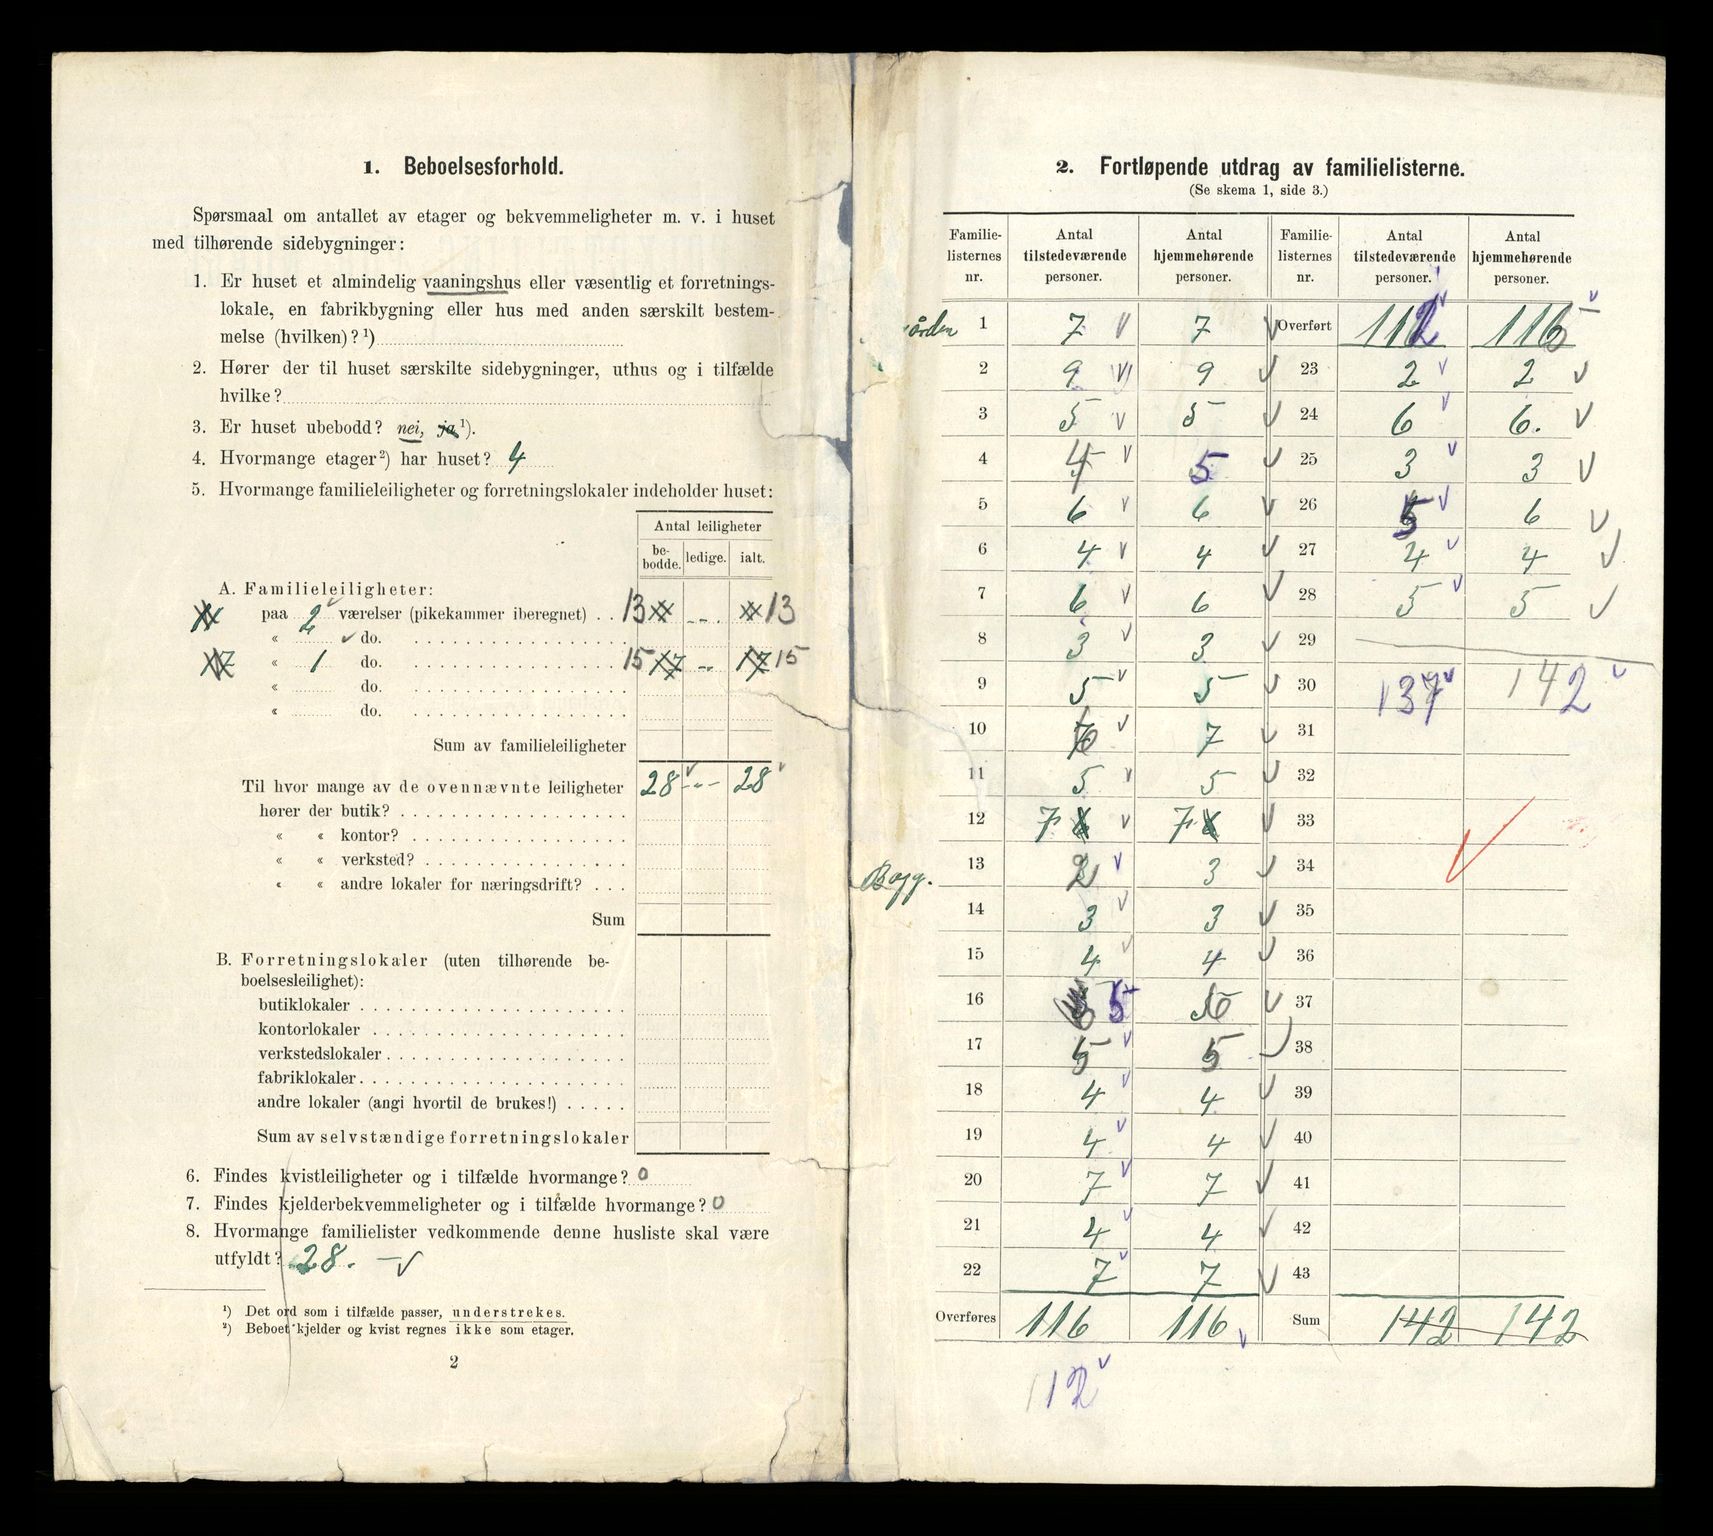 1. Beboelsesforhold.
Spørsmaal om antallet av etager og bekvemmeligheter m. v. i huset
med tilhørende sidebygninger:
1. Er huset et almindelig vaaningshus eller væsentlig et forretnings-
lokale, en fabrikbygning eller hus med anden særskilt bestem-
melse (hvilken)? ¹)
2. Hører der til huset særskilte sidebygninger, uthus og i tilfælde
hvilke?
3. Er huset ubebodd? nei, ja ¹).
4. Hvormange etager ²) har huset? 4
5. Hvormange familieleiligheter og forretningslokaler indeholder huset:
Antal leiligheter
be-
bodde. ledige. ialt.
A. Familieleiligheter:
paa 2 værelser (pikekammer iberegnet) . . 13 13
« do.
17 « 1 do. 15 17 17 15
« do.
« do.
Sum av familieleiligheter
Til hvor mange av de ovennævnte leiligheter 28 28
hører der butik?
« « kontor?
« « verksted?
« « andre lokaler for næringsdrift?
Sum
B. Forretningslokaler (uten tilhørende be-
boelsesleilighet):
butiklokaler
kontorlokaler
verkstedslokaler
fabriklokaler
andre lokaler (angi hvortil de brukes!)
Sum av selvstændige forretningslokaler
6. Findes kvistleiligheter og i tilfælde hvormange? 0
7. Findes kjelderbekvemmeligheter og i tilfælde hvormange? 0
8. Hvormange familielister vedkommende denne husliste skal være
utfyldt? 28.
¹) Det ord som i tilfælde passer, understrekes.
²) Beboet kjelder og kvist regnes ikke som etager.
2
2. Fortløpende utdrag av familielisterne.
(Se skema 1, side 3.)
Familie-
listernes
nr. Antal
tilstedeværende
personer. Antal
hjemmehørende
personer. Familie-
listernes
nr. Antal
tilstedeværende
personer. Antal
hjemmehørende
personer.
1 7 7 Overført 112 116
2 9 9 23 2 2
3 5 5 24 6 6.
4 4 5 25 3 3
5 6 6 26 5 6
6 4 4 27 4 4
7 6 6 28 5 5
8 3 3 29
9 5 5 30 137 142
10 6 7 31
11 5 5 32
12 7 6 7 6 33
Bagg. 13 2 3 34
14 3 3 35
15 4 4 36
16 5 6 37
17 5 5 38
18 4 4 39
19 4 4 40
20 7 7 41
21 4 4 42
22 7 7 43
Overføres 116 116 Sum 142 142
112